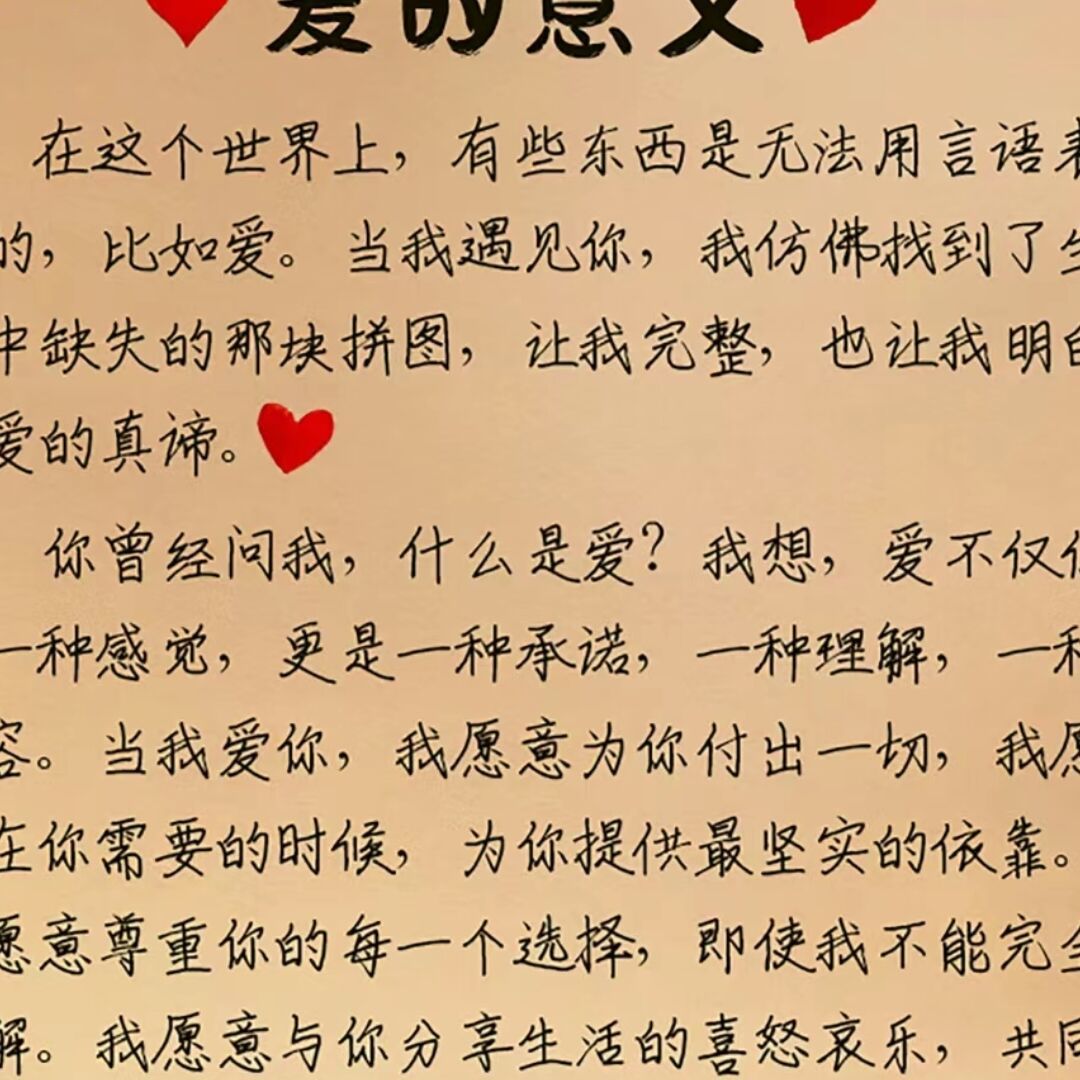 爱的意义
在这个世界上，有些东西是无法用言语表
的，比如爱。当我遇见你，我仿佛找到了生
中缺失的那块拼图，让我完整，也让我明白
爱的真谛。
你曾经问我，什么是爱？我想，爱不仅仅
一种感觉，更是一种承诺，一种理解，一种
容。当我爱你，我愿意为你付出一切，我愿
在你需要的时候，为你提供最坚实的依靠。
愿意尊重你的每一个选择，即使我不能完全
解。我愿意与你分享生活的喜怒哀乐，共同